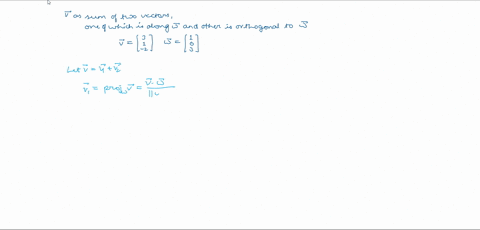 v⃗ as sum of two vectors,
one of which is along w⃗ and other is orthogonal to w⃗
v⃗ = [3 1 -2] w⃗ = [1 0 3]
Let v⃗ = v⃗₁ + v⃗₂
v⃗₁ = proj_w⃗ v⃗ = v⃗ · w⃗ / ||w